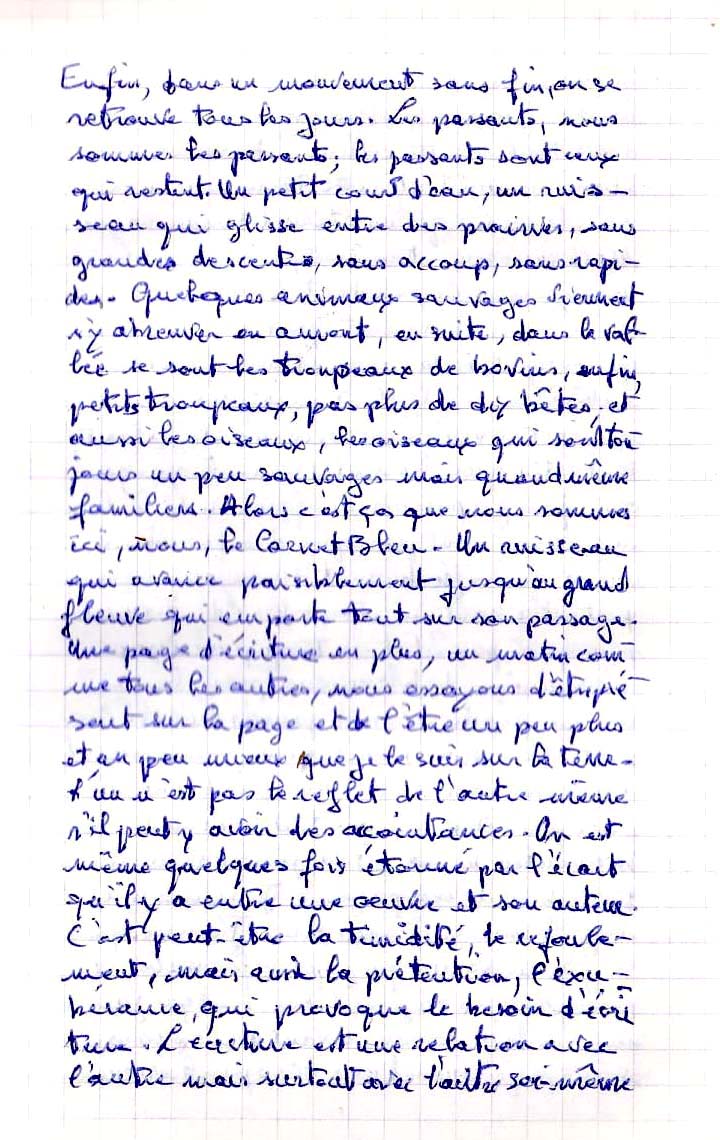 Enfin, dans un mouvement sans fin, on se
retrouve tous les jours. Les passants, nous
sommes les passants; les passants sont ceux
qui restent. Un petit court d'eau, un ruis-
seau qui glisse entre des prairies, sans
grandes descentes, sans accoup, sans rapi-
des. Quelques animaux sauvages viennent
s'y abreuver en amont, en suite, dans la val-
lée se sont les troupeaux de bovins, enfin,
petits troupeaux, pas plus de dix bêtes, et
aussi les oiseaux, les oiseaux qui sont tou
jours un peu sauvages mais quand même
familiers. Alors c'est ça que nous sommes
ici, nous, le Carnet Bleu. Un ruisseau
qui avance paisiblement jusqu'au grand
fleuve qui emporte tout sur son passage.
Une page d'écriture en plus, un matin com
me tous les autres, nous essayons d'être pré
sent sur la page et de l'être un peu plus
et un peu mieux que je le suis sur la terre.
L'un n'est pas le reflet de l'autre même
s'il peut y avoir des accointances. On est
même quelques fois étonné par l'écart
qu'il y a entre une oeuvre et son auteur.
C'est peut-être la timidité, le refoule-
ment, mais aussi la prétention, l'éxu-
bérance, qui provoque le besoin d'écri
ture. L'écriture est une relation avec
l'autre mais surtout avec l'autre soi-même